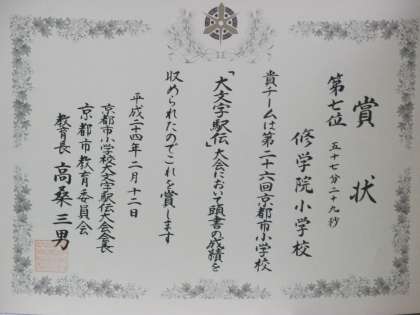 賞状
第七位 五十七分二十九秒
修学院小学校
貴チームは第二十六回京都市小学校
「大文字駅伝」大会において頭書の成績を
収められたのでこれを賞します
平成二十四年二月十二日
京都市小学校大文字駅伝大会会長
京都市教育委員会
教育長 高桑三男